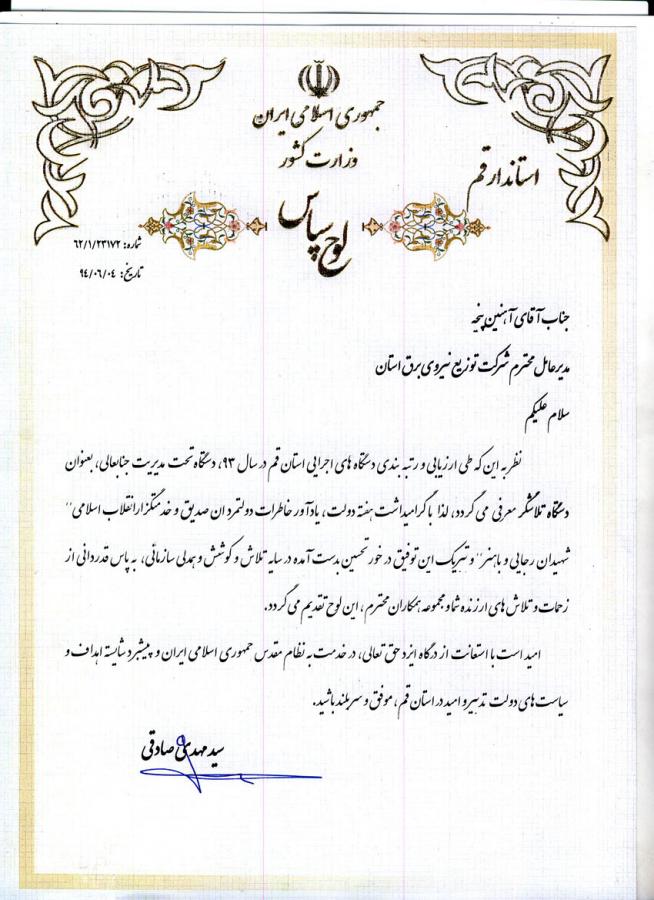 جمهوری اسلامی ایران
وزارت کشور
استاندار قم
لوح سپاس
شماره: ۶۲/۱/۲۳۱۷۲
تاریخ: ۹۴/۰۶/۰۴
جناب آقای آهنین پنجه
مدیرعامل محترم شرکت توزیع نیروی برق استان
سلام علیکم
نظر به این که طی ارزیابی و رتبه بندی دستگاه های اجرایی استان قم در سال ۹۳، دستگاه تحت مدیریت جنابعالی، بعنوان
دستگاه تلاشگر معرفی می گردد، لذا با گرامیداشت هفته دولت، یادآور خاطرات دولتمردان صدیق و خدمتگزار انقلاب اسلامی "
شهیدان رجایی و باهنر" و تبریک این توفیق در خور تحسین بدست آمده در سایه تلاش و کوشش و همدلی سازمانی، به پاس قدردانی از
زحمات و تلاش های ارزنده شما و مجموعه همکاران محترم، این لوح تقدیم می گردد.
امید است با استعانت از درگاه ایزد حق تعالی، در خدمت به نظام مقدس جمهوری اسلامی ایران و پیشبرد شایسته اهداف و
سیاست های دولت تدبیر و امید در استان قم، موفق و سربلند باشید.
سید مهدی صادقی